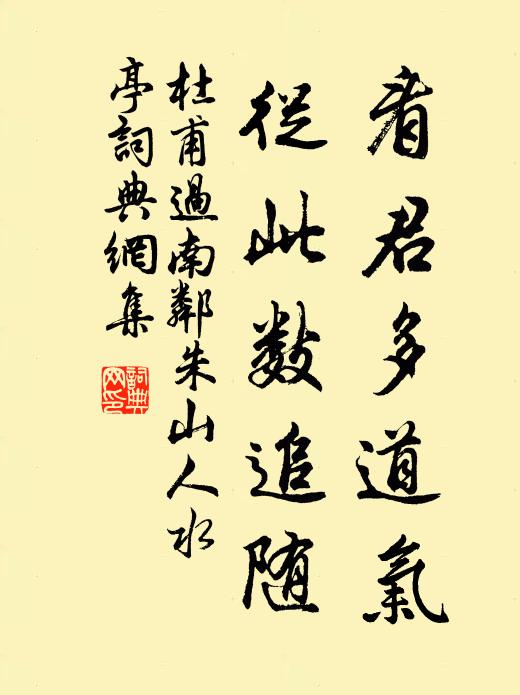 看君多道氣
從此數追随
杜甫過南鄰朱山人水
亭詞典網集
詞典網印